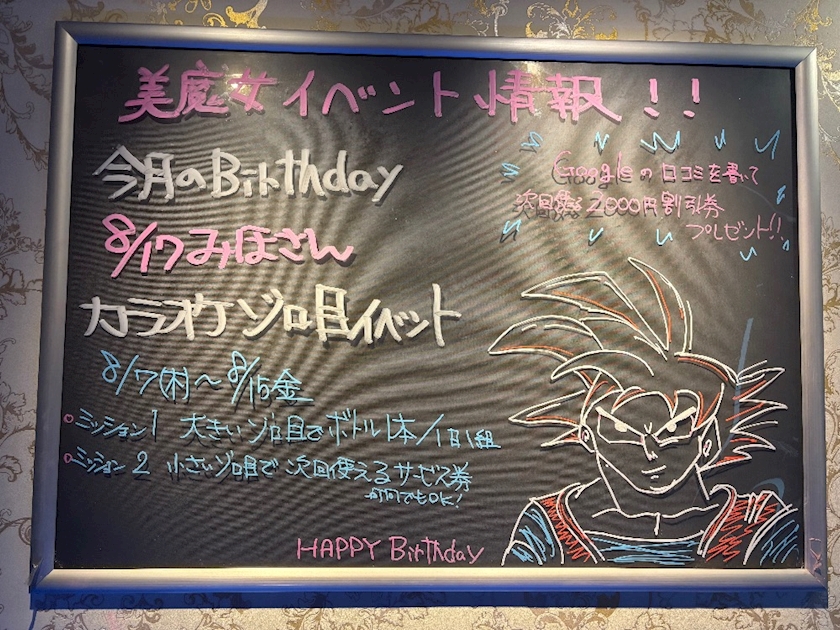 美魔女イベント情報!!
今月のBirthday
8/17みほさん
カラオケゾロ目イベント
8/7(木)〜8/15金
ミッション1 大きいゾロ目でボトル1本/1日1組
ミッション2 小さいゾロ目で次回使えるサービス券
何回でもOK!
HAPPY Birthday
Googleの口コミを書いて
次回使える2000円割引券
プレゼント!!